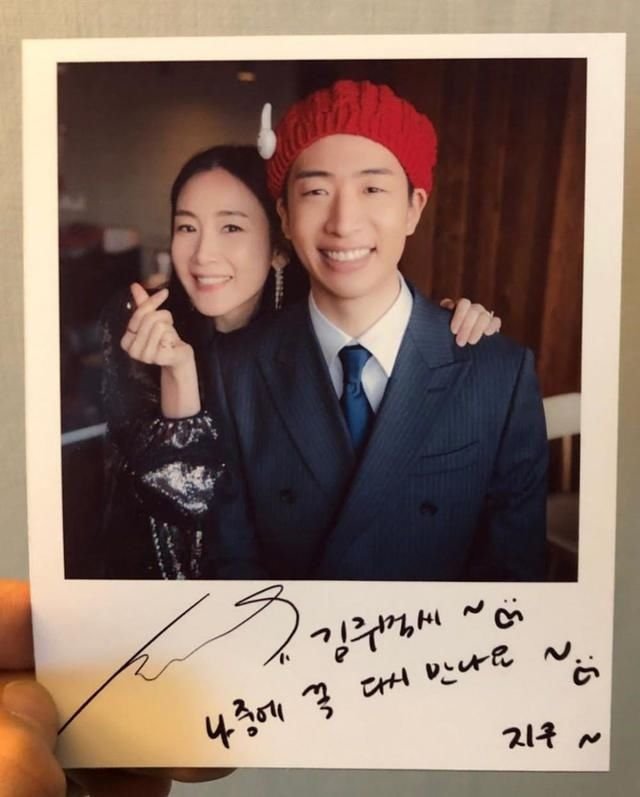 김퀴걱씨 ~
나중에 꼭 다시 만나요 ~
지우 ~